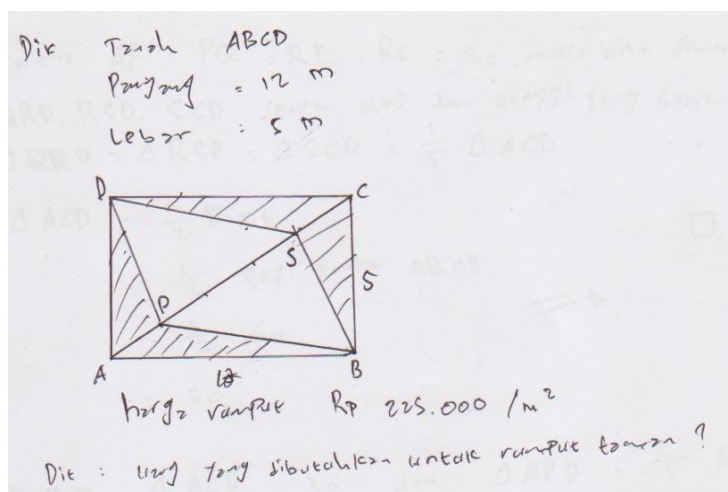 Dik Tanah ABCD
Panjang = 12 m
Lebar : 5 m
D C
S
5
P
A B
12
harga rumput Rp 225.000 /m²
Dit : uang yang dibutuhkan untuk rumput taman ?